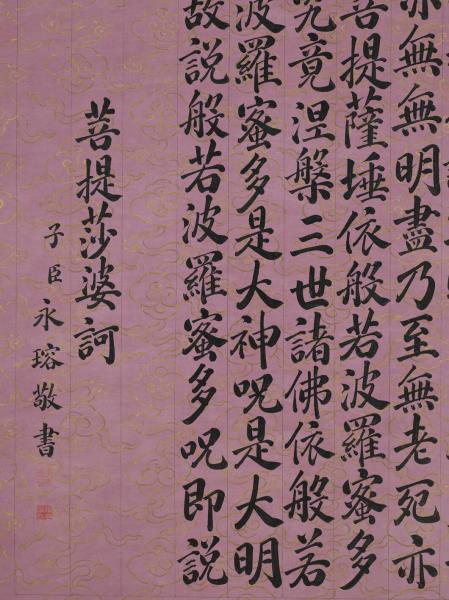 亦無無明盡乃至無老死亦
菩提薩埵依般若波羅蜜多
究竟涅槃三世諸佛依般若
波羅蜜多是大神呪是大明
故說般若波羅蜜多呪即說
菩提莎婆訶
子臣永瑢敬書